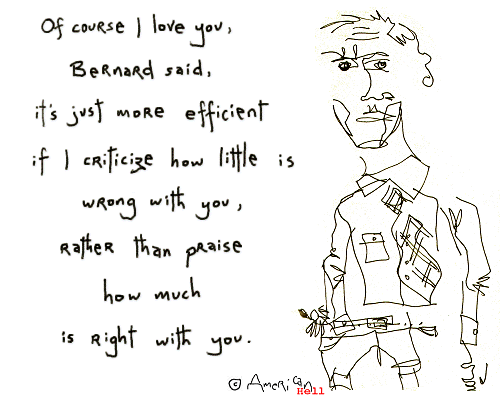 Of course I love you,
Bernard said,
it's just more efficient
if I criticize how little is
wrong with you,
rather than praise
how much
is right with you.
© American
Hell